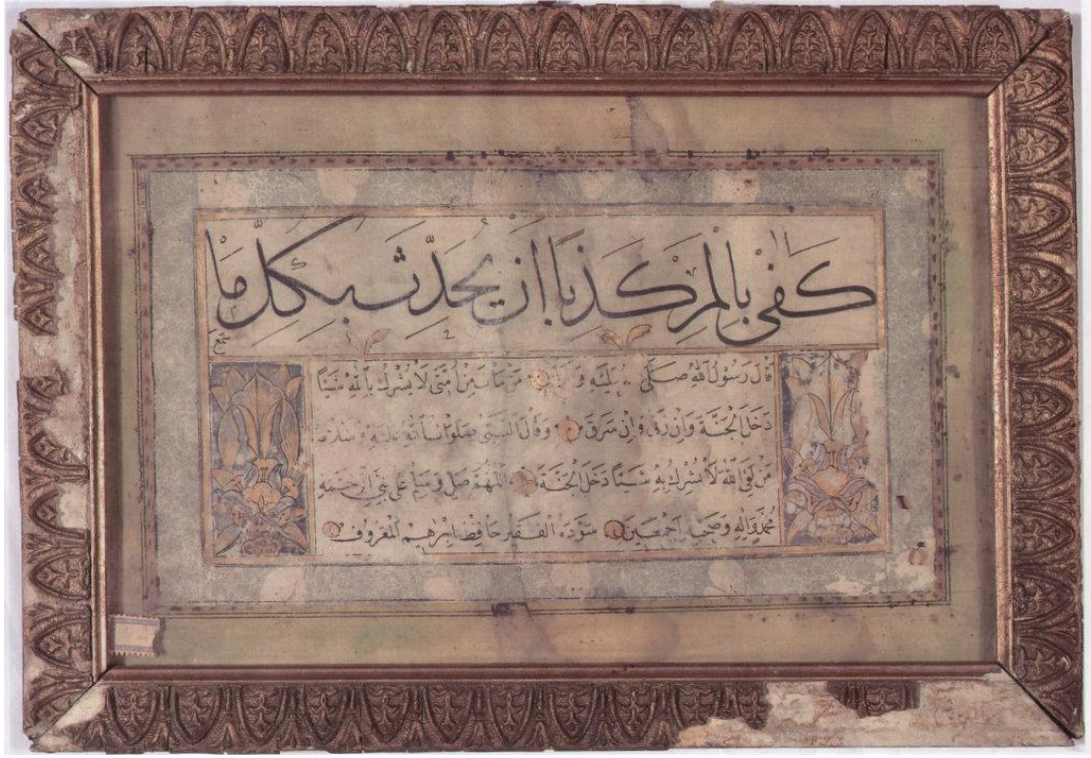 كفى بالمرء كذبا ان يحدث بكل ما
سمع
قال رسول الله صلى عليه و من مات من امتى لا يشرك بالله شيئا
دخل الجنة وان زنى وان سرق وقال النبى صلوات الله عليه وسلامه
من لقى الله لا يشرك به شيئا دخل الجنة اللهم صل وسلم على نبى الرحمه
محمد واله وصحبه اجمعين سوده الفقير حافظ ابرهيم المعروف